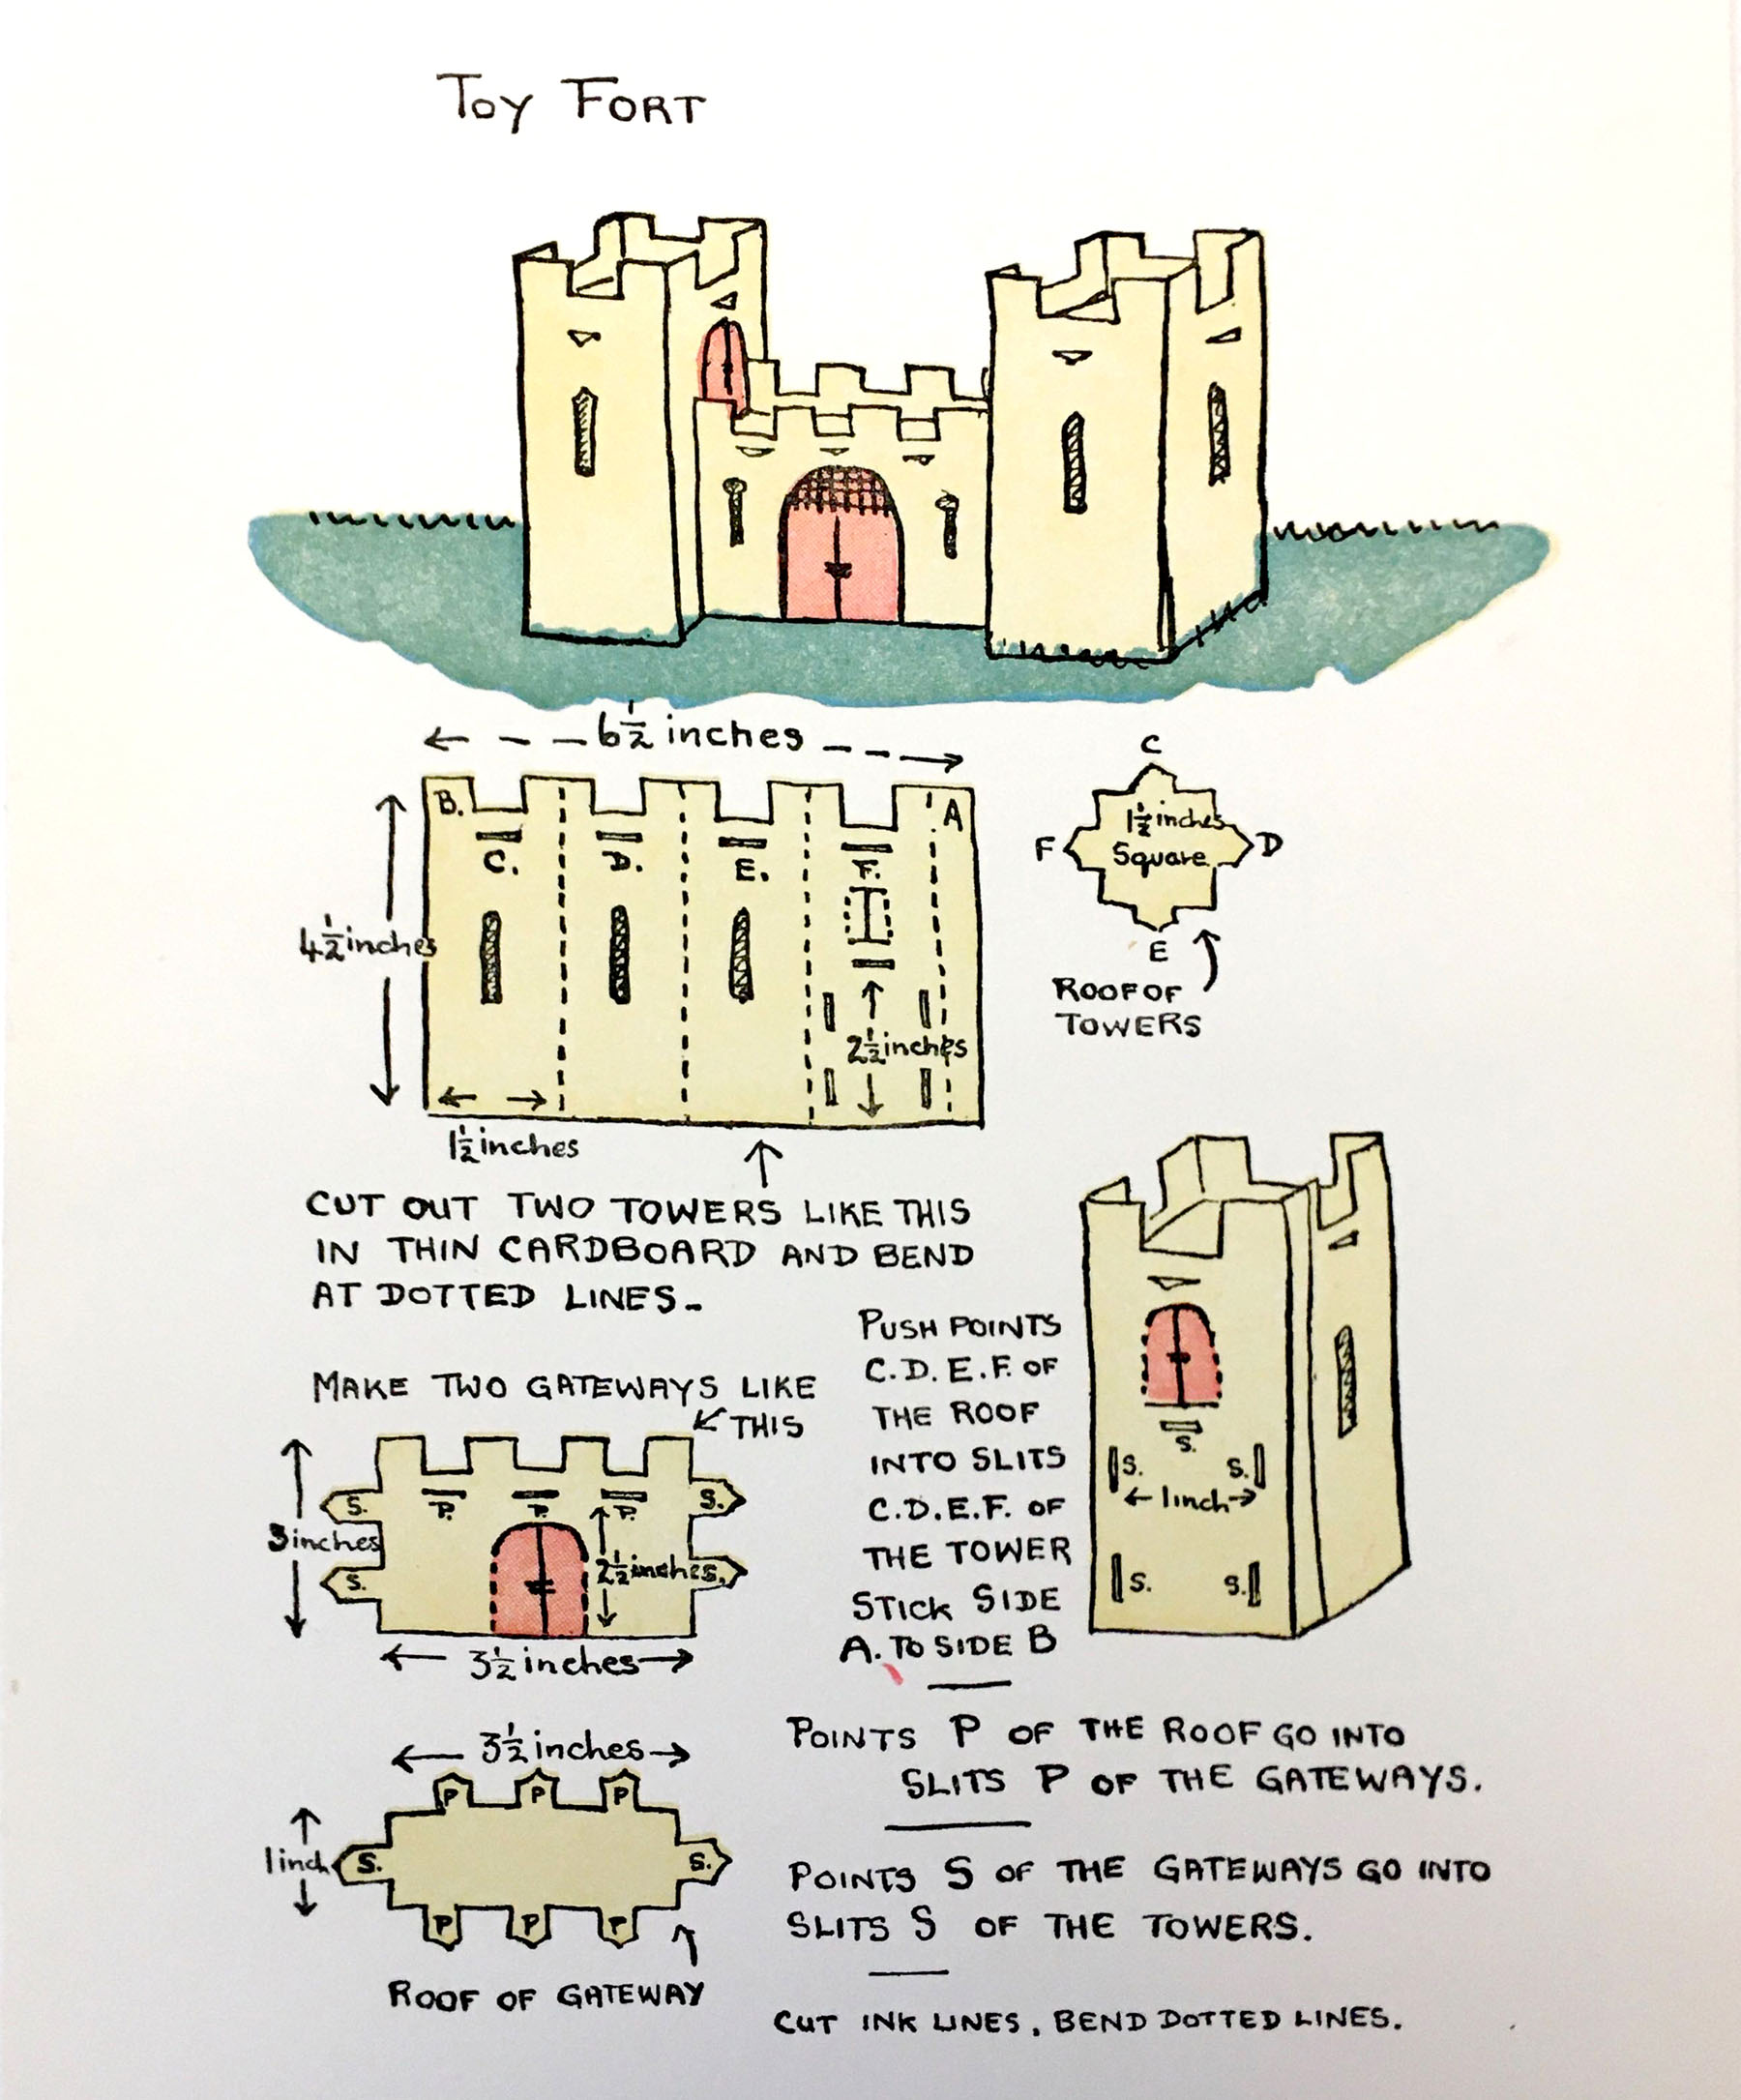 TOY FORT
6½ inches
B. A
C. D. E. F.
4½ inches
2½ inches
1½ inches
C
1½ inches
F Square D
E
ROOF OF
TOWERS
CUT OUT TWO TOWERS LIKE THIS
IN THIN CARDBOARD AND BEND
AT DOTTED LINES_
MAKE TWO GATEWAYS LIKE
THIS
S. P. P. P. S.
3 inches
2½ inches
S. S.
3½ inches
PUSH POINTS
C.D.E.F. OF
THE ROOF
INTO SLITS
C.D.E.F. OF
THE TOWER
STICK SIDE
A. TO SIDE B
S.
S. S.
1 inch
S. S.
3½ inches
P P P
1 inch S. S.
P P P
ROOF OF GATEWAY
POINTS P OF THE ROOF GO INTO
SLITS P OF THE GATEWAYS.
POINTS S OF THE GATEWAYS GO INTO
SLITS S OF THE TOWERS.
CUT INK LINES, BEND DOTTED LINES.